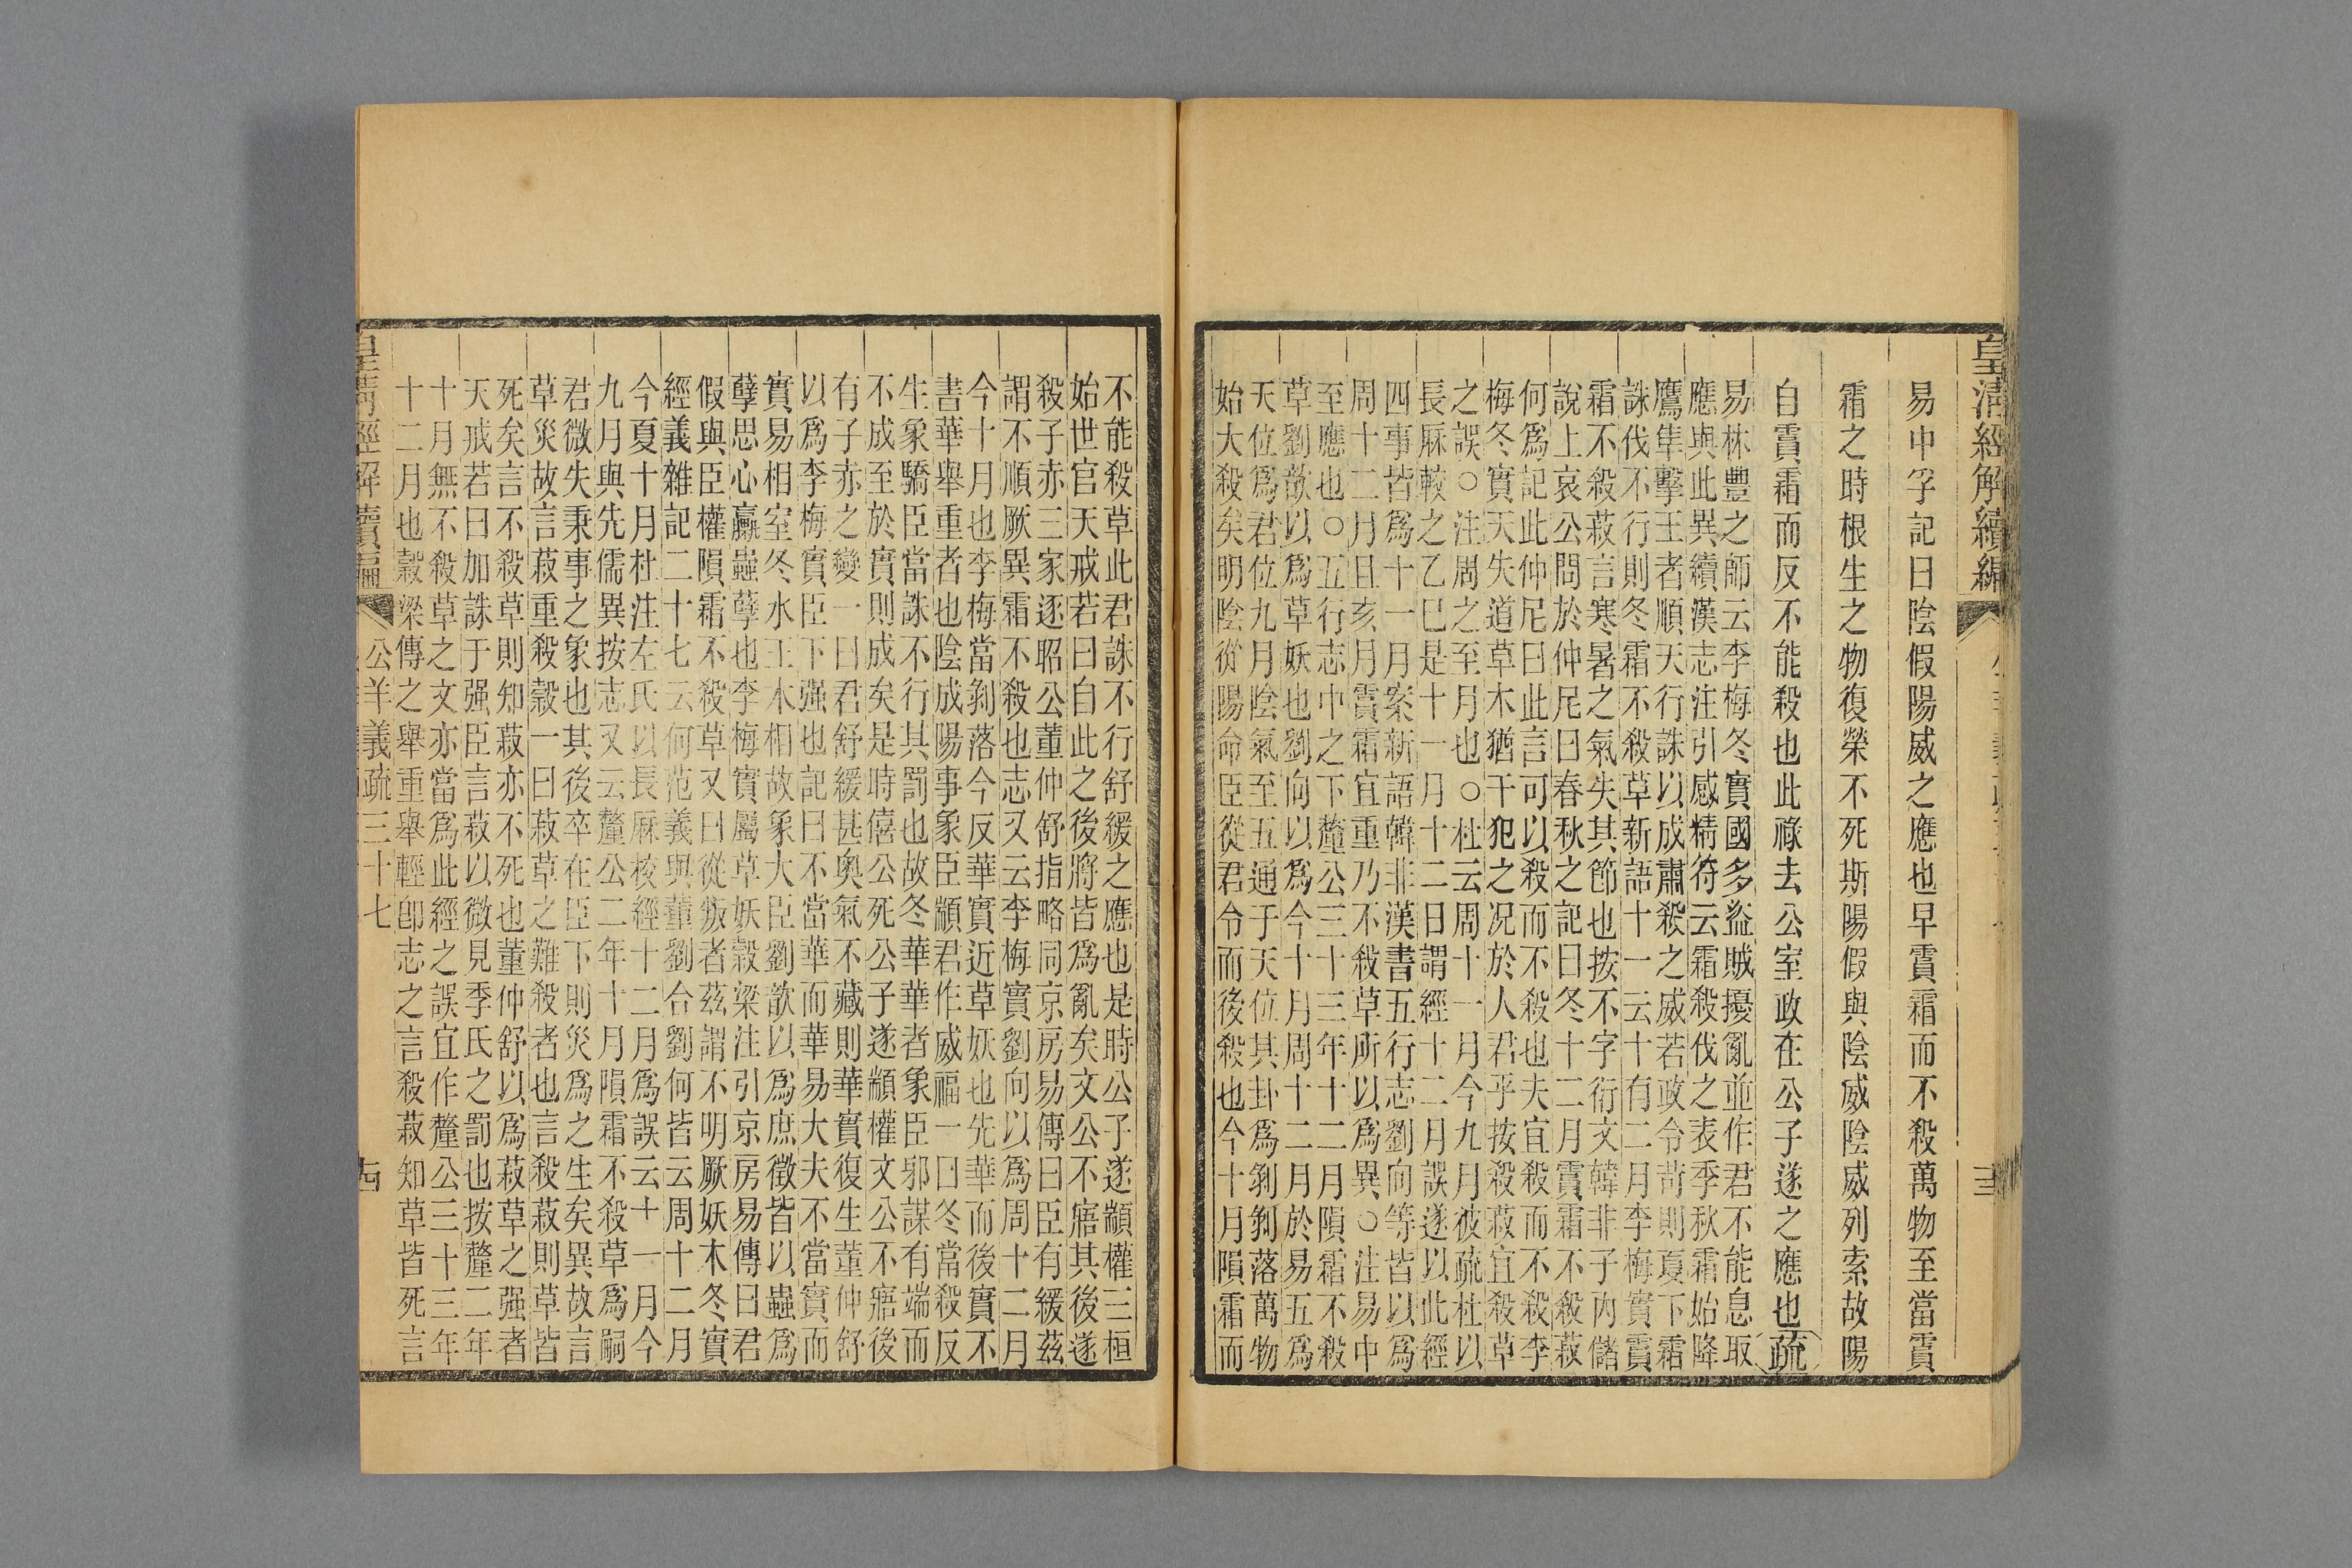 皇淸經解續編
易中孚記曰陰假陽威之應也早霣霜而不殺萬物至當霣
霜之時根生之物復榮不死斯陽假與陰威陰威列索故陽
自霣霜而反不能殺也此祿去公室政在公子遂之應也疏
易林豐之師云李梅冬實國多盜賊擾亂並作君不能息取
應與此異續漢志注引感精符云霜殺伐之表季秋霜始降
鷹隼擊王者順天行誅以成肅殺之威若政令苛則夏下霜
誅伐不行則冬霜不殺草新語十一云十有二月李梅實霣
霜不殺菽言寒暑之氣失其節也按不字衍文韓非子內儲
說上哀公問於仲尼曰春秋之記曰冬十二月霣霜不殺菽
何爲記此仲尼曰此言可以殺而不殺也夫宜殺而不殺李
梅冬實天失道草木猶干犯之况於人君乎按殺菽宜殺草
之誤○注周之至月也○杜云周十一月今九月彼疏杜以
長厤較之乙巳是十一月十二日謂經十二月誤遂以此經
四事皆爲十一月案新語韓非漢書五行志劉向等皆以爲
周十二月且亥月霣霜宜重乃不殺草所以爲異○注易中
至應也○五行志中之下釐公三十三年十二月隕霜不殺
草劉歆以爲草妖也劉向以爲今十月周十二月於易五爲
天位爲君位九月陰氣至五通于天位其卦爲剝剝落萬物
始大殺矣明陰從陽命臣從君令而後殺也今十月隕霜而
不能殺草此君誅不行舒緩之應也是時公子遂顓權三桓
始世官天戒若曰自此之後將皆爲亂矣文公不寤其後遂
殺子赤三家逐昭公董仲舒指略同京房易傳曰臣有緩茲
謂不順厥異霜不殺也志又云李梅實劉向以爲周十二月
今十月也李梅當剝落今反華實近草妖也先華而後實不
書華舉重者也陰成陽事象臣顓君作威福一曰冬當殺反
生象驕臣當誅不行其罰也故冬華華者象臣邪謀有端而
不成至於實則成矣是時僖公死公子遂顓權文公不寤後
有子赤之變一曰君舒緩甚奧氣不藏則華實復生董仲舒
以爲李梅實臣下强也記曰不當華而華易大夫不當實而
實易相室冬水王木相故象大臣劉歆以爲庶徵皆以蟲爲
孽思心蠃蟲孽也李梅實屬草妖穀梁注引京房易傳曰君
假與臣權隕霜不殺草又曰從叛者茲謂不明厥妖木冬實
經義雜記二十七云何范義與董劉合劉何皆云周十二月
今夏十月杜注左氏以長厤校經十二月爲誤云十一月今
九月與先儒異按志又云釐公二年十月隕霜不殺草爲嗣
君微失秉事之象也其後卒在臣下則災爲之生矣異故言
草災故言菽重殺穀一曰菽草之難殺者也言殺菽則草皆
死矣言不殺草則知菽亦不死也董仲舒以爲菽草之强者
天戒若曰加誅于强臣言菽以微見季氏之罰也按釐二年
十月無不殺草之文亦當爲此經之誤宜作釐公三十三年
十二月也穀梁傳之舉重舉輕卽志之言殺菽知草皆死言
公羊義疏三十七